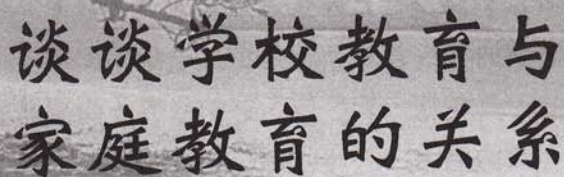 谈谈学校教育与
家庭教育的关系